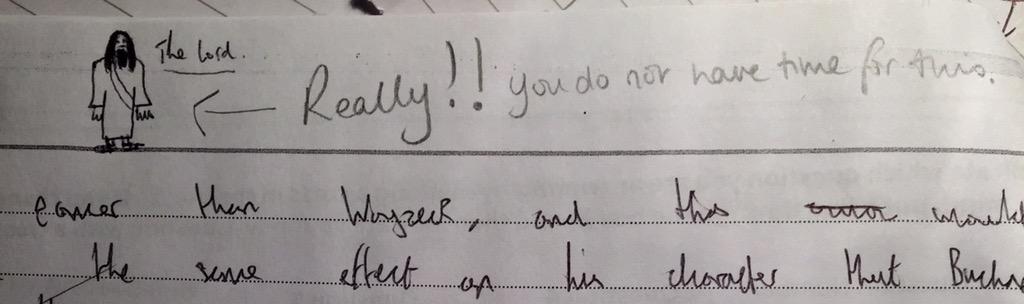 The Lord.
Really!! You do not have time for this.
earlier than Woyzeck, and this would
the same effect on his character that Buchn